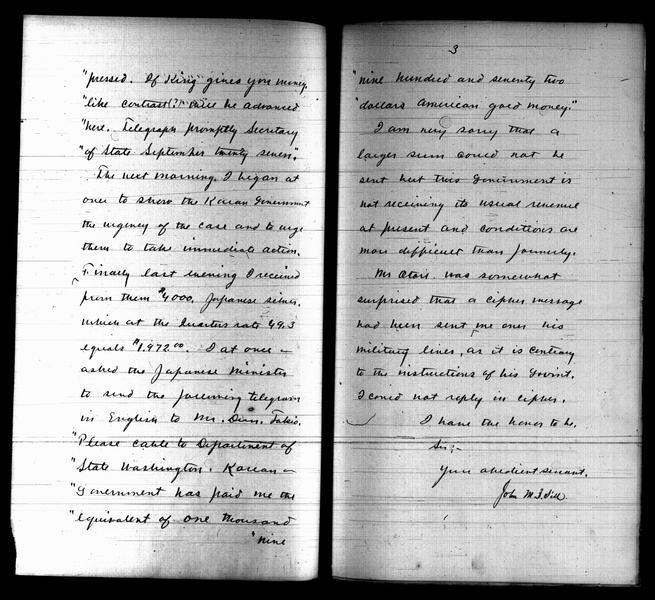 "pressed. If King gives you money
"like contrast(?) once he advanced
"here. Telegraph promptly Secretary
"of State September twenty seven".
The next morning I began at
once to show the Korean Government
the urgency of the case and to urge
them to take immediate action.
Finally last evening I received
from them $4000. Japanese silver,
which at the Quarters rate 49.3
equals $1.972.00. I at once
asked the Japanese Minister
to send the following telegram
in English to Mr. Dun, Tokio.
"Please cable to Department of
"State Washington. Korean
"Government has paid me the
"equivalent of one thousand
"nine
3
"nine hundred and seventy two
"dollars American gold money."
I am very sorry that a
larger sum could not be
sent but this Government is
not receiving its usual revenue
at present and conditions are
more difficult than formerly.
Mr. Otori was somewhat
surprised that a cipher message
had been sent me over his
military lines, as it is contrary
to the instructions of his Govm't.
I could not reply in cipher.
I have the honor to be,
Sir:-
Your obedient servant,
John M. B. Sill